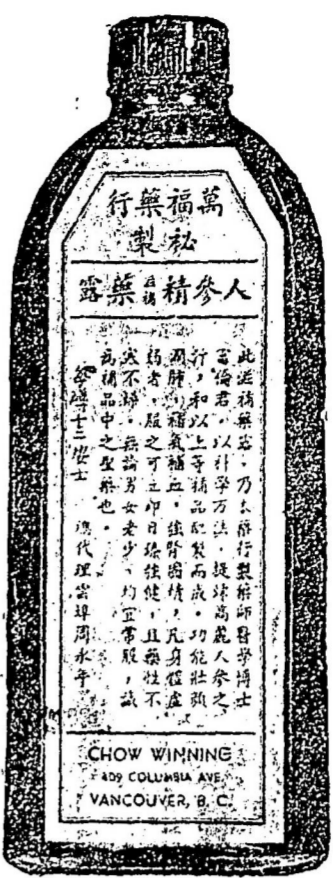 萬福藥行
秘製
人參精滋補藥露
此滋補藥露,乃本藥行製藥師醫學博士
倫君,以科學方法,提煉高麗人參之
行,和以上等補品配製而成。功能壯腦
潤肺,補氣補血,強腎固精,凡身體虛
弱者,服之可立即日臻強健,且藥性不
寒不燥,無論男女老少,均宜常服,誠
為補品中之聖藥也。
每樽十二安士 總代理雲埠周永年
CHOW WINNING
409 COLUMBIA AVE.
VANCOUVER, B. C.